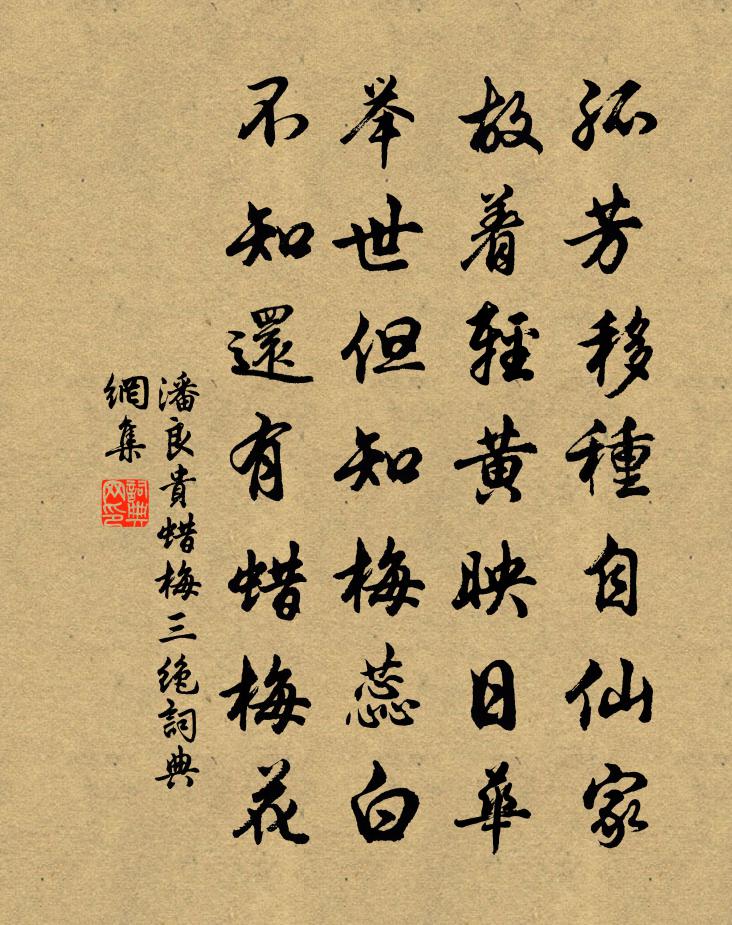 孤芳移種自仙家
故着輕黃映日華
举世但知梅蕊白
不知還有蜡梅花
潘良貴蜡梅三絶詞典
網集
詞典
网印